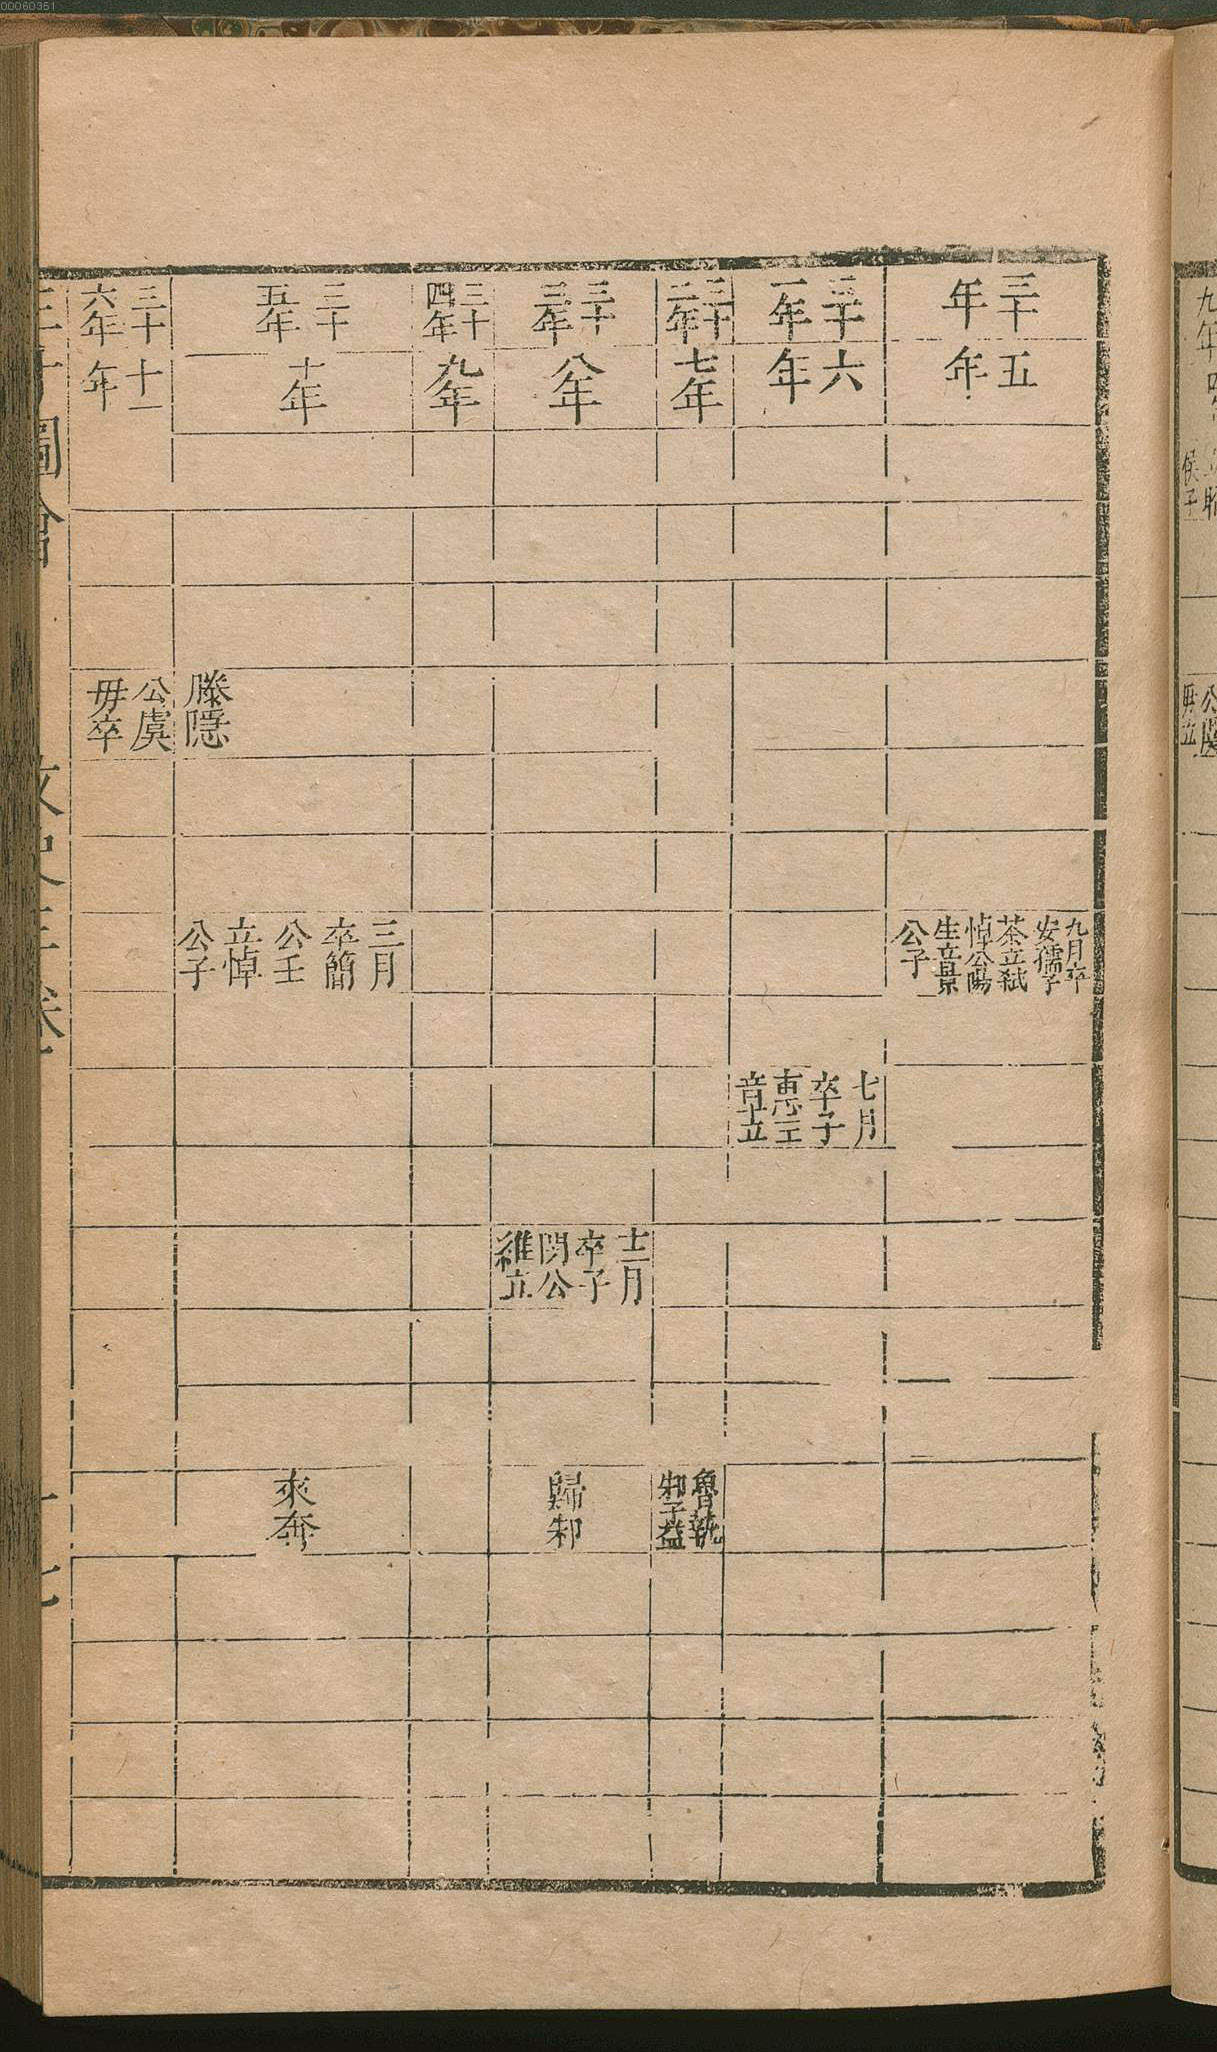 00060351
三十
年
五
年
九月卒
安孺子
荼立弑
悼公陽
生立景
公子
三十
一年
六
年
七月
卒子
惠王
章立
三十
二年
七年
魯執
邾子益
三十
三年
八年
十二月
卒子
閔公
維立
歸邾
三十
四年
九年
三十
五年
十年
三月
卒簡
公壬
立悼
公子
來奔
滕隱
公虞
毋卒
三十
六年
十一
年